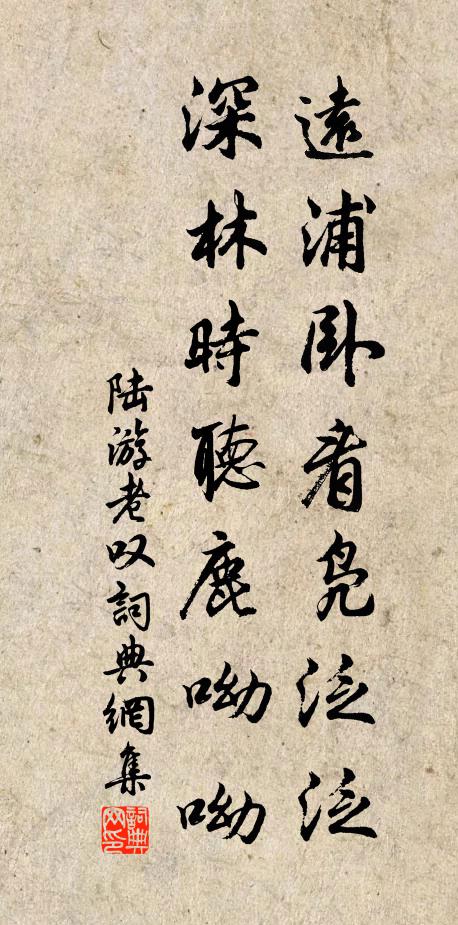 遠浦卧看鳧泛泛
深林時聽鹿呦呦
陸游老叹詞典網集
詞典网印